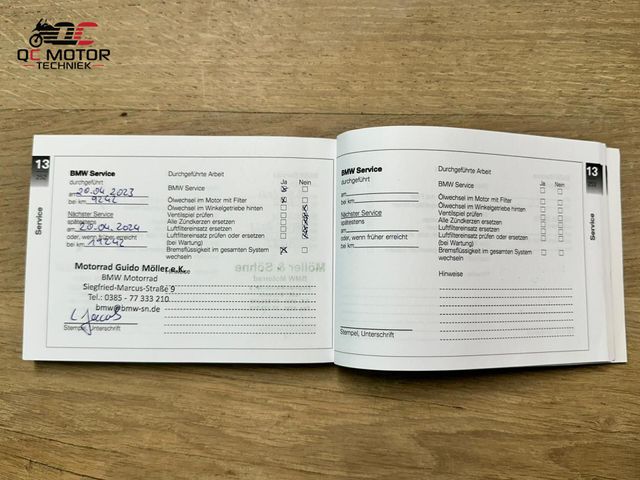 QC
QC MOTOR
TECHNIEK
13
Service
BMW Service
durchgeführt
am 20.04.2023
bei km 9242
Nächster Service
spätestens
am 20.04.2024
oder, wenn früher erreicht
bei km 19242
Motorrad Guido Möller e.K.
BMW Motorrad
Siegfried-Marcus-Straße 9
Tel.: 0385 - 77 333 210
bmw@bmw-sn.de
Stempel, Unterschrift
Durchgeführte Arbeit
Ja Nein
BMW Service
Ölwechsel im Motor mit Filter
Ölwechsel im Winkelgetriebe hinten
Ventilspiel prüfen
Alle Zündkerzen ersetzen
Luftfiltereinsatz ersetzen
Luftfiltereinsatz prüfen oder ersetzen
(bei Wartung)
Bremsflüssigkeit im gesamten System
wechseln
BMW Service
durchgeführt
am
bei km
Nächster Service
spätestens
am
oder, wenn früher erreicht
bei km
Stempel, Unterschrift
Durchgeführte Arbeit
Ja Nein
BMW Service
Ölwechsel im Motor mit Filter
Ölwechsel im Winkelgetriebe hinten
Ventilspiel prüfen
Alle Zündkerzen ersetzen
Luftfiltereinsatz ersetzen
Luftfiltereinsatz prüfen oder ersetzen
(bei Wartung)
Bremsflüssigkeit im gesamten System
wechseln
Hinweise
13
Service